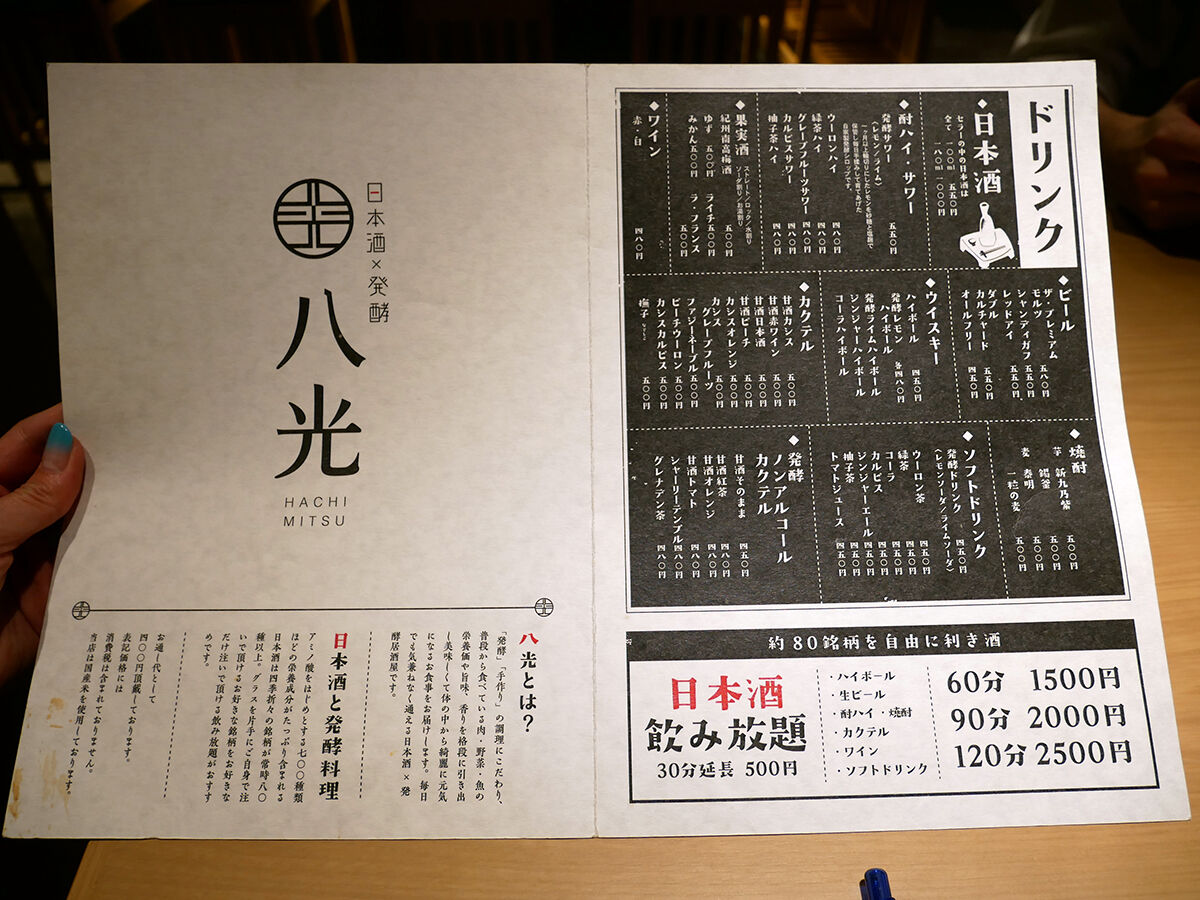 日本酒×発酵
八光
HACHI
MITSU
八光とは？
「発酵」「手作り」の調理にこだわり、
普段から食べている肉・野菜・魚の
栄養価や旨味、香りを格段に引き出
し美味しくて体の中から綺麗に元気
になるお食事をお届けします。毎日
でも気兼ねなく通える日本酒×発
酵居酒屋です。
日本酒と発酵料理
アミノ酸をはじめとする七〇〇種類
ほどの栄養成分がたっぷり含まれる
日本酒は四季折々の銘柄が常時八〇
種以上。グラスを片手にご自身で注
いで頂けるお好きな銘柄をお好きな
だけ注いで頂ける飲み放題がおすす
めです。
お通し代として
四〇〇円頂戴しております。
表記価格には
消費税は含まれておりません。
当店は国産米を使用しております。
ドリンク
◆日本酒
セラーの中の日本酒は
全て 一〇〇ml 五五〇円
一八〇ml 一〇〇〇円
◆酎ハイ・サワー
発酵サワー 五五〇円
（レモン／ライム）
一ヶ月以上輪切りにしたレモンを砂糖と塩麹で
保管し毎日手揉みして育てあげた
自家製発酵シロップです。
ウーロンハイ 四八〇円
緑茶ハイ 四八〇円
グレープフルーツサワー 四八〇円
カルピスサワー 四八〇円
柚子茶ハイ 四八〇円
◆果実酒 ストレート／ロック／水割り
ソーダ割り／お湯割り
紀州南高梅酒 五〇〇円
ゆず 五〇〇円 ライチ 五〇〇円
みかん 五〇〇円 ラ・フランス 五〇〇円
◆ワイン
赤・白 四八〇円
◆ビール
ザ・プレミアム
モルツ 五八〇円
シャンディガフ 五五〇円
レッドアイ 五五〇円
ダブル
カルチャード 五五〇円
オールフリー 四五〇円
◆ウイスキー
ハイボール 四五〇円
発酵レモン
ハイボール 各四八〇円
発酵ライムハイボール
ジンジャーハイボール
コーラハイボール
◆カクテル
甘酒カシス 五〇〇円
甘酒赤ワイン 五〇〇円
甘酒日本酒 五〇〇円
甘酒ピーチ 五〇〇円
カシスオレンジ 五〇〇円
カシス
グレープフルーツ 五〇〇円
ファジーネーブル 五〇〇円
ピーチウーロン 五〇〇円
カシスカルピス 五〇〇円
撫子 五〇〇円
◆焼酎
芋 新九乃紫 五〇〇円
鍋釜 五〇〇円
麦 泰明 五〇〇円
一粒の麦 五〇〇円
◆ソフトドリンク
発酵ドリンク 四五〇円
（レモンソーダ／ライムソーダ）
ウーロン茶 四五〇円
緑茶 四五〇円
コーラ 四五〇円
カルピス 四五〇円
ジンジャーエール 四五〇円
柚子茶 四五〇円
トマトジュース 四五〇円
◆発酵
ノンアルコール
カクテル
甘酒そのまま 四五〇円
甘酒紅茶 四八〇円
甘酒オレンジ 四八〇円
甘酒トマト 四八〇円
シャーリーテンプル 四八〇円
グレナデン茶 四八〇円
約80銘柄を自由に利き酒
日本酒
飲み放題
30分延長 500円
・ハイボール
・生ビール
・酎ハイ・焼酎
・カクテル
・ワイン
・ソフトドリンク
60分 1500円
90分 2000円
120分 2500円